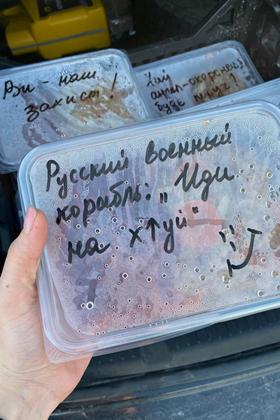 Ви - наш
захист!
Хай
ангел-охоронець
буде
Русский военный
корабль: „Иди
на х↑уй"